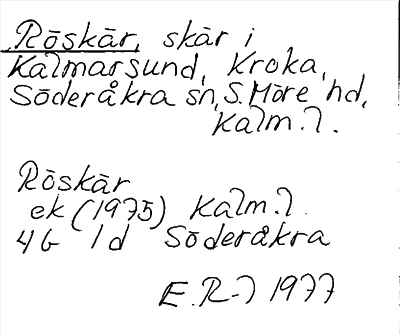 Röskär, skär i
Kalmarsund, Kroka,
Söderåkra sn, S. Möre hd,
Kalm. l.
Röskär
ek (1975) Kalm. l.
4G 1d Söderåkra
E. R-l 1977